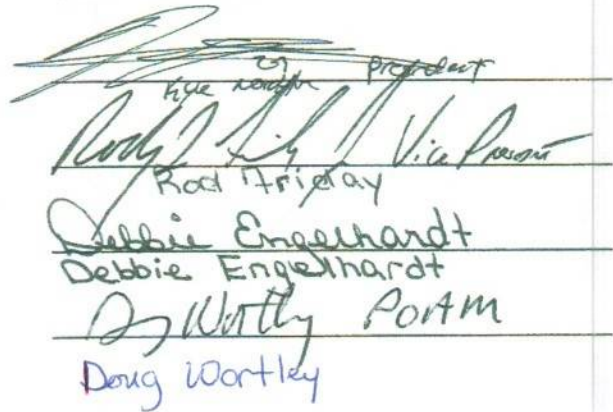 President
Kyle
Vice President
Rod Friday
Debbie Engelhardt
Debbie Engelhardt
Doug Wortley POAM
Doug Wortley